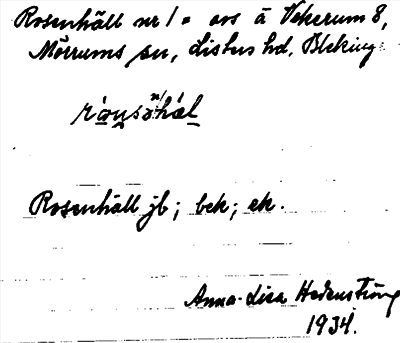 Rosenhäll nr 1 = avs å Vekerum 8,
Mörrums sn, Listers hd, Blekinge
Rosenhäll jb; bek; ek.
Anna-Lisa Hedenström
1934.